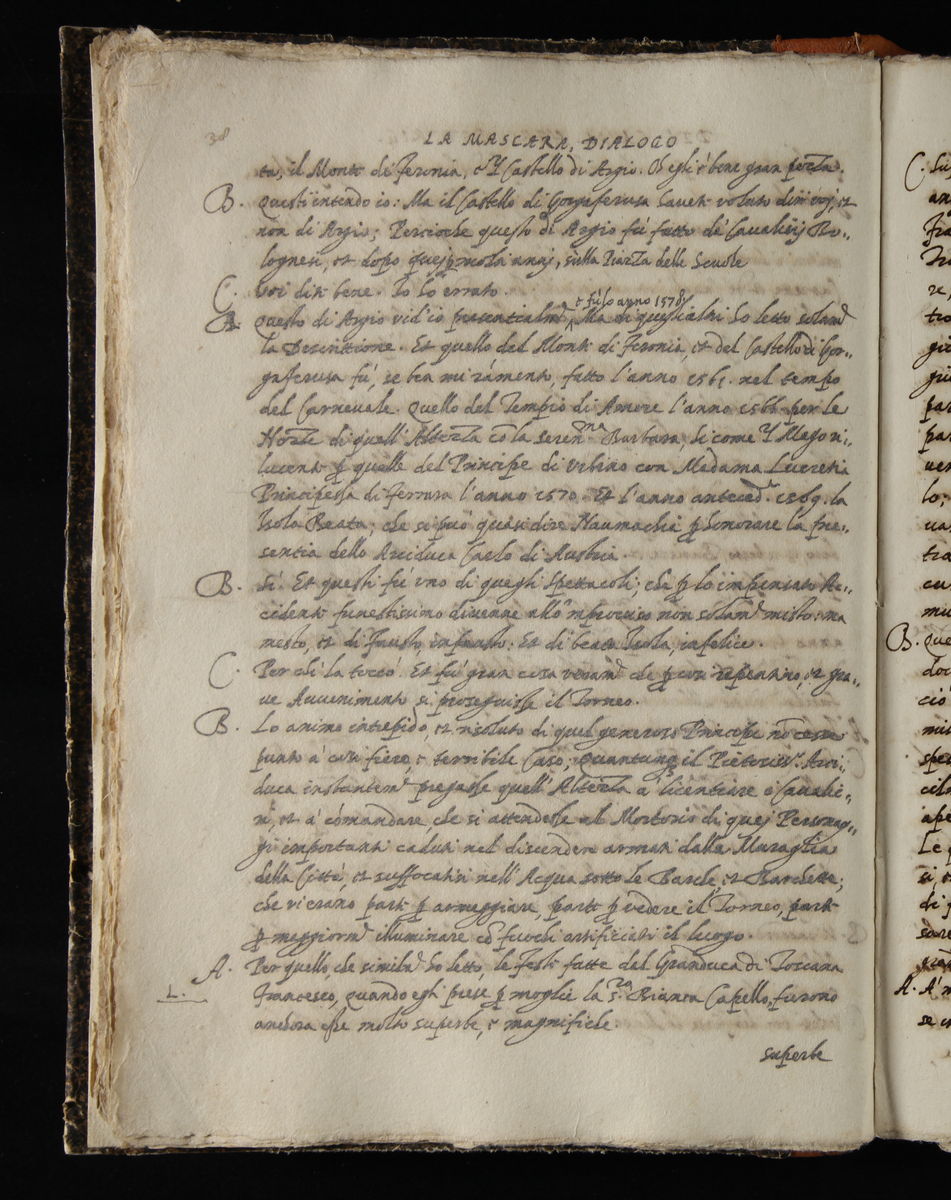 38
LA MASCARA, DIALOGO
ta, il Monte di Feronia, e 'l Castello di Argio. Oh egli è bene gran pezza.
B. Questi intendo io: Ma il Castello di Gorgoferusa havete voluto dir voi, et
non di Argio; Perciochè questo di Argio fù fatto de' Cavalierj Bo-
lognesi, et dopo quej p molti annj, sulla Piazza delle Scuole
C. Voi dite bene. Io hò errato.
B. Questo di Argio vid' io presentialmte, e fù lo anno 1578 Ma di quegli altri hò letto solamte
la Descrittione. Et quello del Monte di Feronia, et del Castello di Gor-
goferusa fù, se ben mi ramento, fatto l'anno 1561. nel tempo
del Carnevale. Quello del Tempio di Amore l'anno 1566 per le
Nozze di quell' Altezza cõ la serenma Barbara, si come 'l Mago ri-
lucente p quelle del Principe di Urbino con Madama Lucretia
Principessa di Ferrara l'anno 1570. Et l'anno anteced.te 1569. la
Isola Beata; che si può quasi dire Naumachia p honorare la pre-
sentia dello Arciduca Carlo di Austria.
B. Sì. Et questi fù uno di quegli spettacoli; che p lo impensato Ac-
cidente funestissimo divenne all' improviso non solamte misto: ma
mesto, et di Fausto, infausto: Et di beata Isola, infelice.
C. Per chi la toccò. Et fù gran cosa veramte che p così repentino, et gra-
ve Avvenimento si proseguisse il Torneo.
B. Lo animo intrepido, et risoluto di quel generoso Principe nõ cesse
punto à così fiero, e terribile Caso; quantunq il Pietosiss.o Arci-
duca instantemte pregasse quell' Altezza à licentiare i Cavalie-
ri, et à comandare, che si attendesse al Mortorio di quej Personag-
gi importanti caduti nel discendere armati dalla Muraglia
della Città, et suffocatisi nell' Acqua sotto le Barche, et Barchette;
che vi erano parte p armeggiare, parte p vedere il Torneo, parte
p maggiormte illuminare cõ fuochi artificiati il luogo.
A. Per quello, che similmte hò letto, le Feste fatte dal Granduca di Toscana
L.
Francesco, quando egli prese p moglie la s.ra Bianca Capello, furono
anchora esse molto superbe, e magnifiche.
superbe